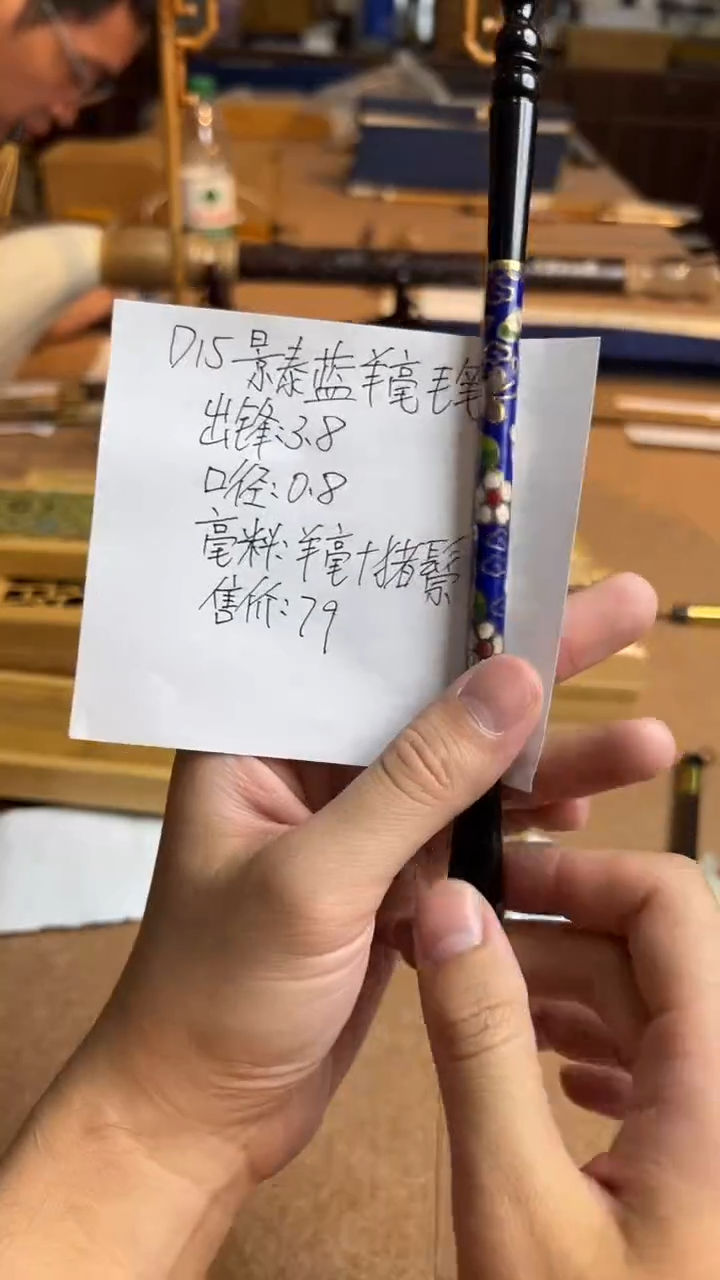 D15景泰蓝羊毫毛笔
出锋:3.8
口径:0.8
毫料:羊毫+猪鬃
售价:79